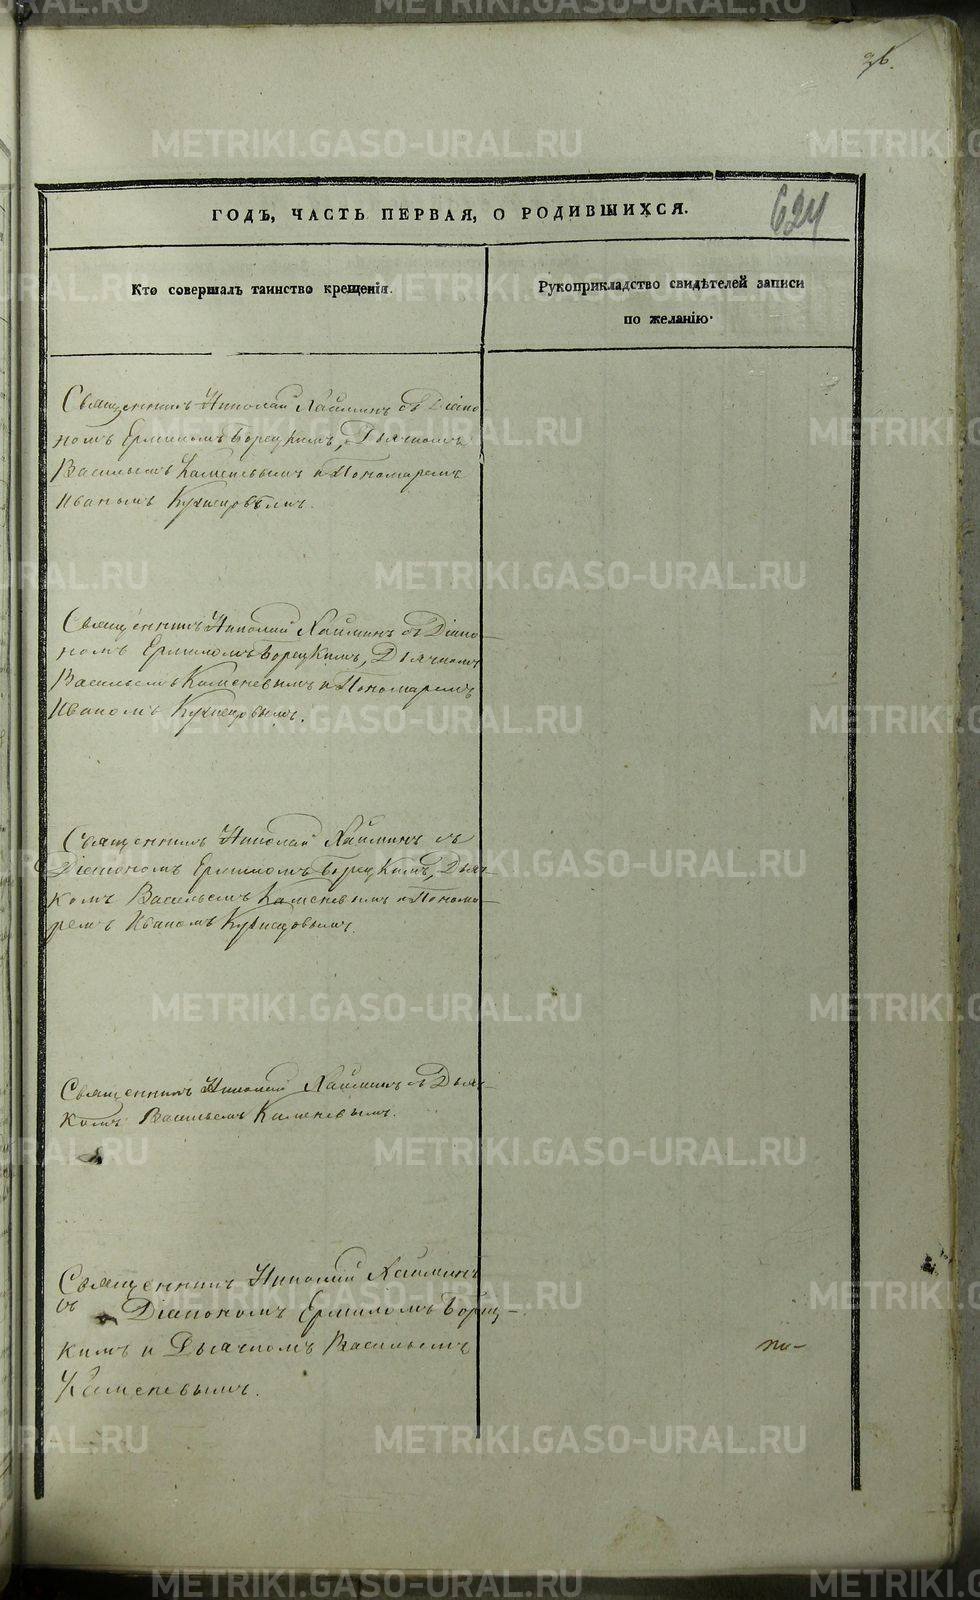 96.
624
ГОДЪ, ЧАСТЬ ПЕРВАЯ, О РОДИВШИХСЯ.
Кто совершалъ таинство крещенія.
Рукоприкладство свидѣтелей записи
по желанію.
Священникъ Николай Хаймин съ Діако-
номъ Ермиломъ Борецкимъ, Дьячкомъ
Васильемъ Каменевымъ и Пономаремъ
Иваномъ Кузнецовымъ.
Священникъ Николай Хайминъ съ Діако-
номъ Ермиломъ Борецкимъ, Дьячкомъ
Васильемъ Каменевымъ и Пономаремъ
Иваномъ Кузнецовымъ.
Священникъ Николай Хайминъ съ
Діакономъ Ермиломъ Борецкимъ, Дьяч-
комъ Васильемъ Каменевымъ и Понома-
ремъ Иваномъ Кузнецовымъ.
Священникъ Николай Хайминъ съ Дьяч-
комъ Васильемъ Каменевымъ.
Священникъ Николай Хайминъ
съ Діакономъ Ермиломъ Борец-
кимъ и Дьячкомъ Васильемъ
Каменевымъ.
по-
METRIKI.GASO-URAL.RU